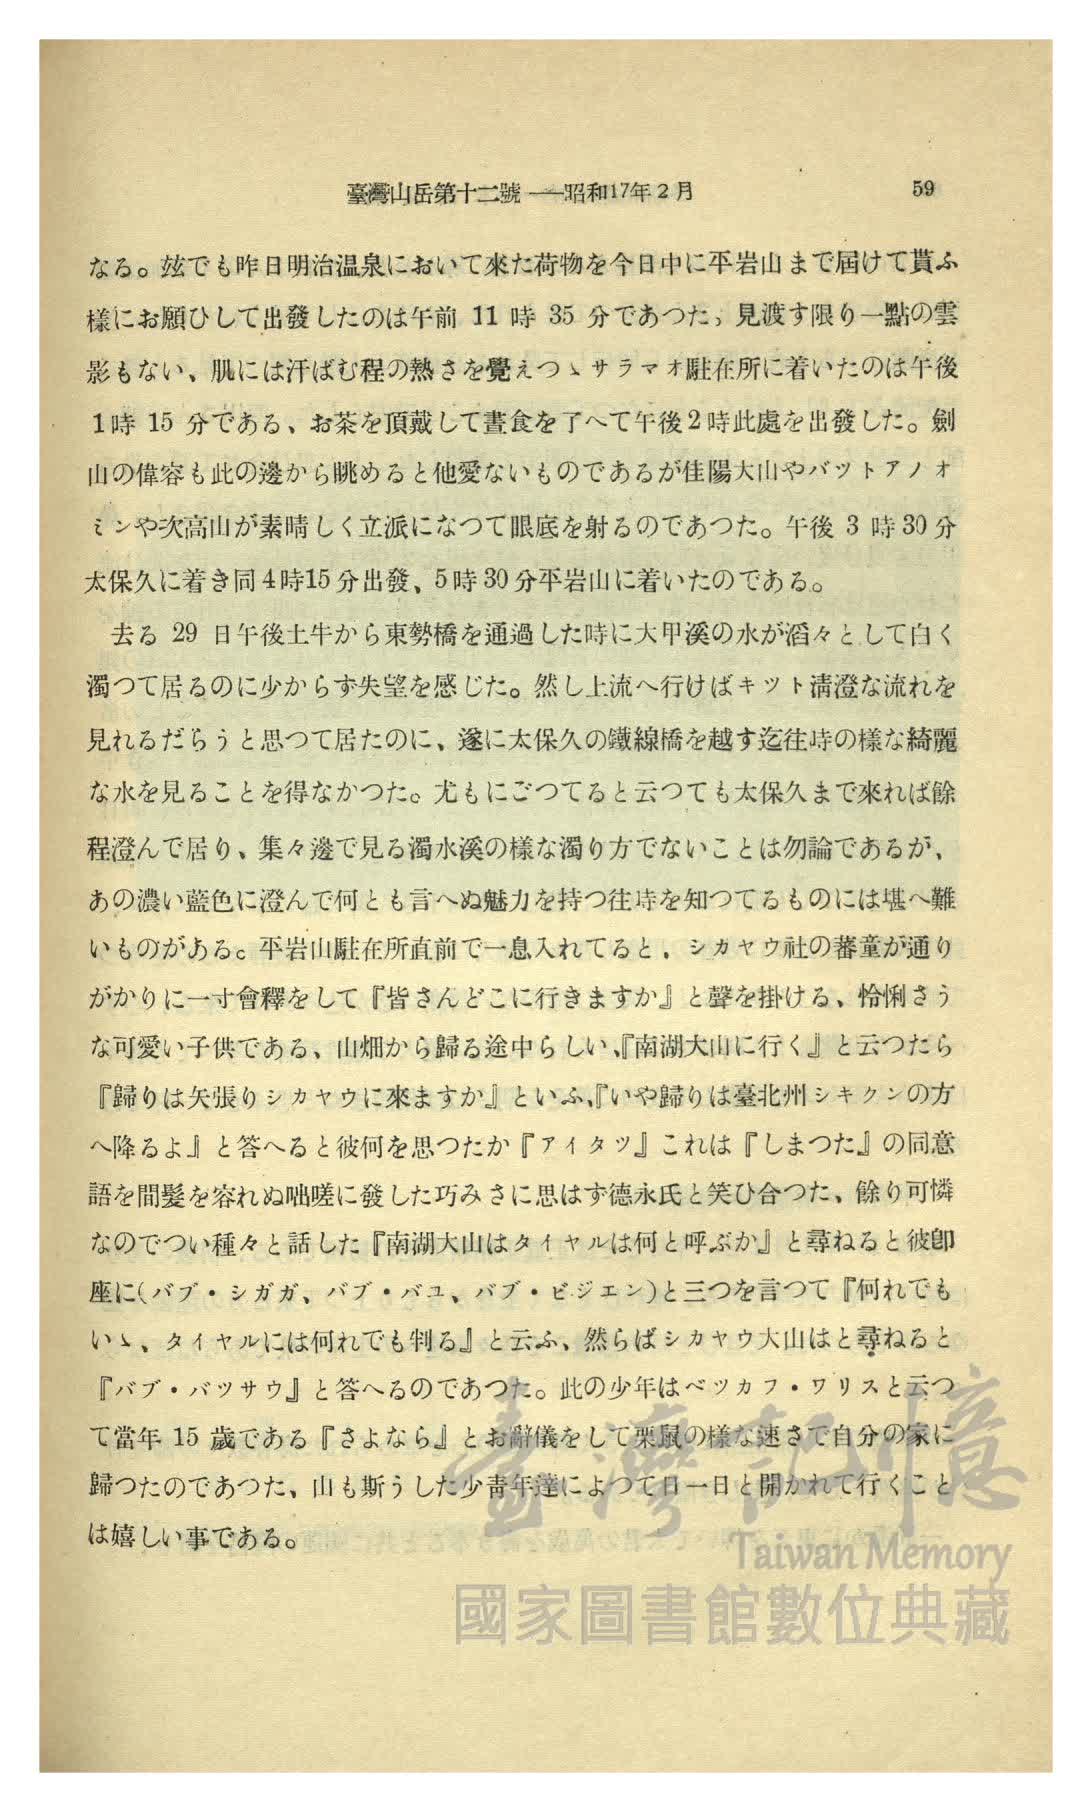 臺灣山岳第十二號──昭和17年2月 59
なる。玆でも昨日明治温泉において來た荷物を今日中に平岩山まで屆けて貰ふ
樣にお願ひして出發したのは午前 11 時 35 分であつた、見渡す限り一點の雲
影もない、肌には汗ばむ程の熱さを覺えつゝサラマオ駐在所に着いたのは午後
1時 15 分である、お茶を頂戴して晝食を了へて午後2時此處を出發した。劍
山の偉容も此の邊から眺めると他愛ないものであるが佳陽大山やバツトアノオ
ミンや次高山が素晴しく立派になつて眼底を射るのであつた。午後 3 時30分
太保久に着き同4時15分出發、5時30分平岩山に着いたのである。
去る 29 日午後土牛から東勢橋を通過した時に大甲溪の水が滔々として白く
濁つて居るのに少からず失望を感じた。然し上流へ行けばキツト淸澄な流れを
見れるだらうと思つて居たのに、遂に太保久の鐵線橋を越す迄往時の樣な綺麗
な水を見ることを得なかつた。尤もにごつてると云つても太保久まで來れば餘
程澄んで居り、集々邊で見る濁水溪の樣な濁り方でないことは勿論であるが、
あの濃い藍色に澄んで何とも言へぬ魅力を持つ往時を知つてるものには堪へ難
いものがある。平岩山駐在所直前で一息入れてると、シカヤウ社の蕃童が通り
がかりに一寸會釋をして『皆さんどこに行きますか』と聲を掛ける、怜悧さう
な可愛い子供である、山畑から歸る途中らしい、『南湖大山に行く』と云つたら
『歸りは矢張りシカヤウに來ますか』といふ、『いや歸りは臺北州シキクンの方
へ降るよ』と答へると彼何を思つたか『アイタツ』これは『しまつた』の同意
語を間髮を容れぬ咄嗟に發した巧みさに思はず德永氏と笑ひ合つた、餘り可憐
なのでつい種々と話した『南湖大山はタイヤルは何と呼ぶか』と尋ねると彼卽
座に(バブ・シガガ、バブ・バユ、バブ・ビジエン)と三つを言つて『何れでも
いゝ、タイヤルには何れでも判る』と云ふ、然らばシカヤウ大山はと尋ねると
『バブ・バツサウ』と答へるのであつた。此の少年はベツカフ・ワリスと云つ
て當年 15 歲である『さよなら』とお辭儀をして栗鼠の樣な速さで自分の家に
歸つたのであつた、山も斯うした少靑年達によつて日一日と開かれて行くこと
は嬉しい事である。
臺灣記憶
Taiwan Memory
國家圖書館數位典藏